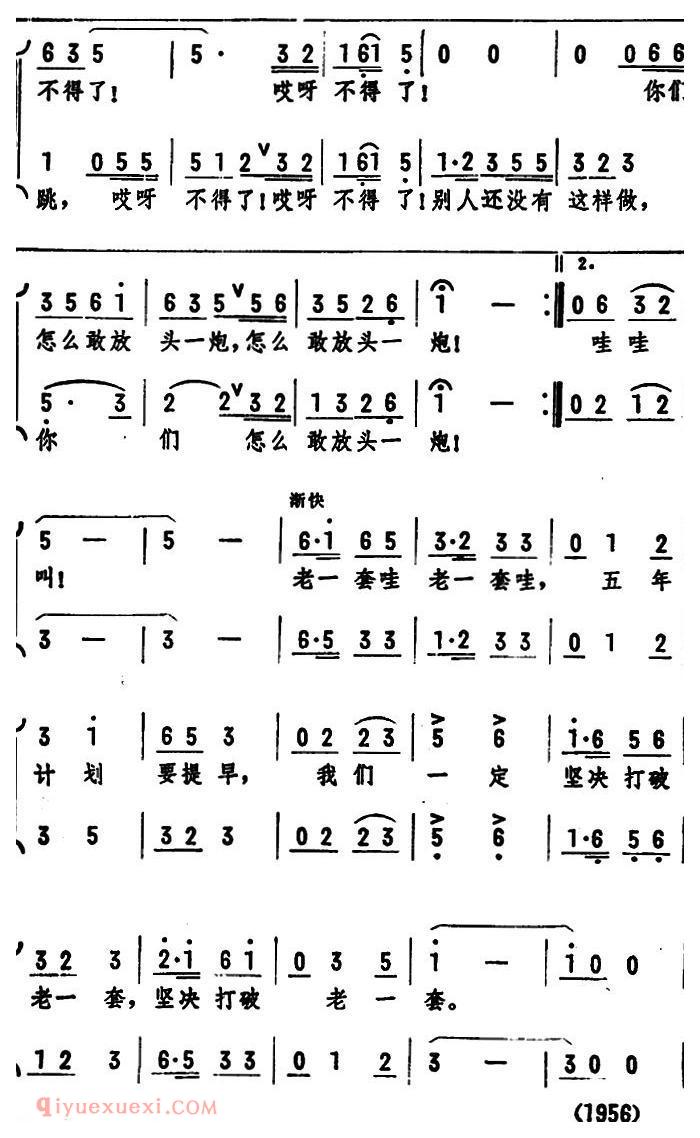 6 3 5 | 5 · 3 2 | 1 6 1 5 | 0 0 | 0 0 6 6
不得了! 哎呀 不得 了! 你们
1 0 5 5 | 5 1 2 V 3 2 | 1 6 1 5 | 1·2 3 5 5 | 3 2 3
跳, 哎呀 不得了!哎呀 不得 了!别人还没有 这样做,
2.
3 5 6 1 | 6 3 5 V 5 6 | 3 5 2 6 | 1 — :| 0 6 3 2
怎么敢放 头一炮,怎么 敢放头一 炮! 哇哇
5 · 3 | 2 2 V 3 2 | 1 3 2 6 | 1 — :| 0 2 1 2
你 们 怎么 敢放头一 炮!
渐快
5 — | 5 — | 6·1 6 5 | 3·2 3 3 | 0 1 2
叫! 老一套哇 老一套哇, 五年
3 — | 3 — | 6·5 3 3 | 1·2 3 3 | 0 1 2
3 1 | 6 5 3 | 0 2 2 3 | 5 6 | 1·6 5 6
计划 要提早, 我们 一定 坚决打破
3 5 | 3 2 3 | 0 2 2 3 | 5 6 | 1·6 5 6
3 2 3 | 2·1 6 1 | 0 3 5 | 1 — | 1 0 0
老一套,坚决打破 老一套。
1 2 3 | 6·5 3 3 | 0 1 2 | 3 — | 3 0 0
qiyuexuexi.COM
(1956)